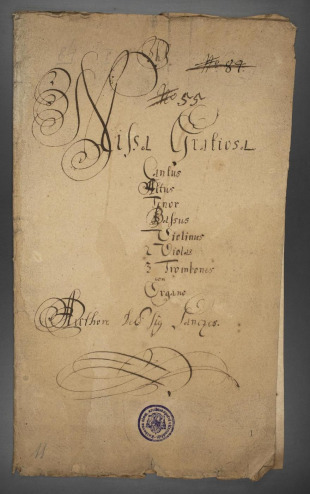 No 84.
No 55
Missa Gratiosa
Cantus
Altus
Tenor
Bassus
Violinus
2 Violæ
3 Trombones
con
Organo
Authore Del Sig
11